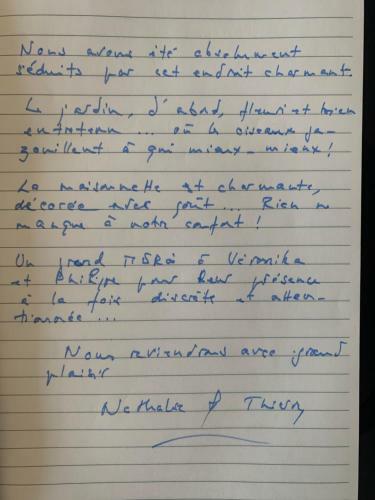 Nous avons été absolument
séduits par cet endroit charmant.
Le jardin, d'abord, fleuri et bien
entretenu ... où les oiseaux ga-
zouillent à qui mieux-mieux !
La maisonnette est charmante,
décorée avec goût ... Rien ne
manque à notre confort !
Un grand MERCI à Véronika
et Philippe pour leur présence
à la fois discrète et atten-
tionnée ...
Nous reviendrons avec grand
plaisir
Nathalie & Thierry